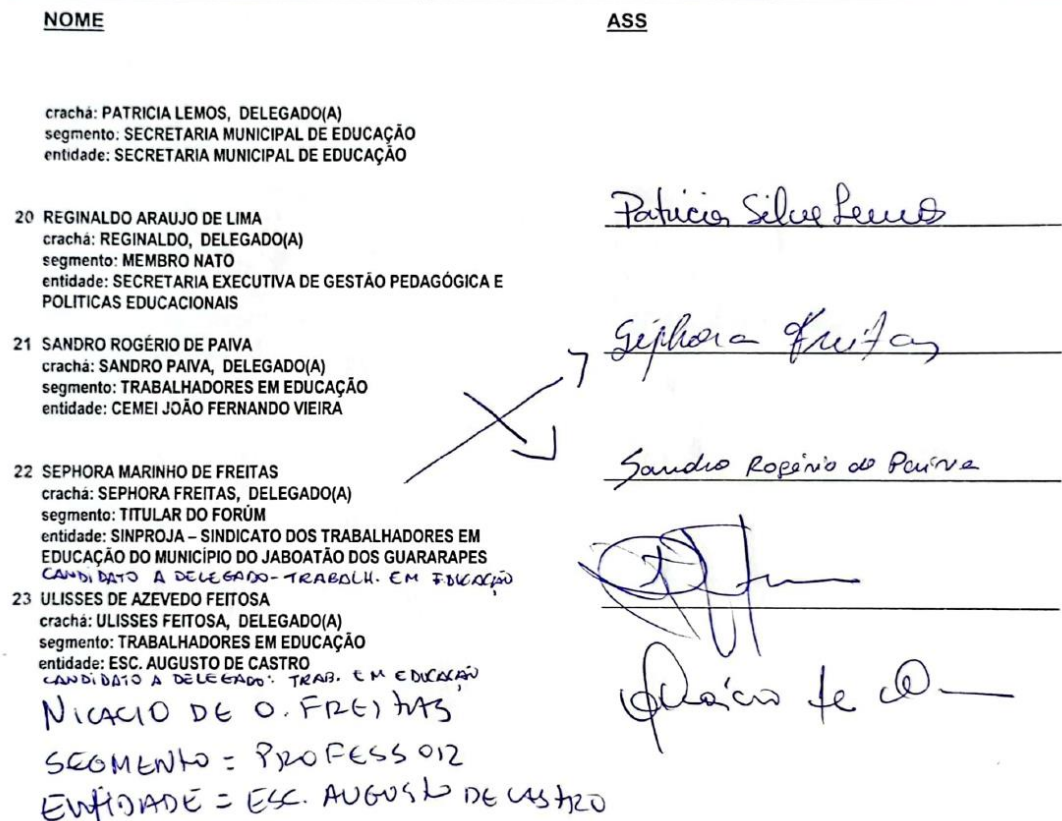 NOME
ASS
crachá: PATRICIA LEMOS, DELEGADO(A)
segmento: SECRETARIA MUNICIPAL DE EDUCAÇÃO
entidade: SECRETARIA MUNICIPAL DE EDUCAÇÃO
Patricia Silva Lemos
20 REGINALDO ARAUJO DE LIMA
crachá: REGINALDO, DELEGADO(A)
segmento: MEMBRO NATO
entidade: SECRETARIA EXECUTIVA DE GESTÃO PEDAGÓGICA E
POLITICAS EDUCACIONAIS
Séphora Freitas
21 SANDRO ROGÉRIO DE PAIVA
crachá: SANDRO PAIVA, DELEGADO(A)
segmento: TRABALHADORES EM EDUCAÇÃO
entidade: CEMEI JOÃO FERNANDO VIEIRA
Sandro Rogério de Paiva
22 SEPHORA MARINHO DE FREITAS
crachá: SEPHORA FREITAS, DELEGADO(A)
segmento: TITULAR DO FORÚM
entidade: SINPROJA – SINDICATO DOS TRABALHADORES EM
EDUCAÇÃO DO MUNICÍPIO DO JABOATÃO DOS GUARARAPES
CANDIDATO A DELEGADO-TRABALH. EM EDUCAÇÃO
23 ULISSES DE AZEVEDO FEITOSA
crachá: ULISSES FEITOSA, DELEGADO(A)
segmento: TRABALHADORES EM EDUCAÇÃO
entidade: ESC. AUGUSTO DE CASTRO
CANDIDATO A DELEGADO: TRAB. EM EDUCAÇÃO
NICACIO DE O. FREITAS
SEGMENTO = PROFESSOR
ENTIDADE = ESC. AUGUSTO DE CASTRO